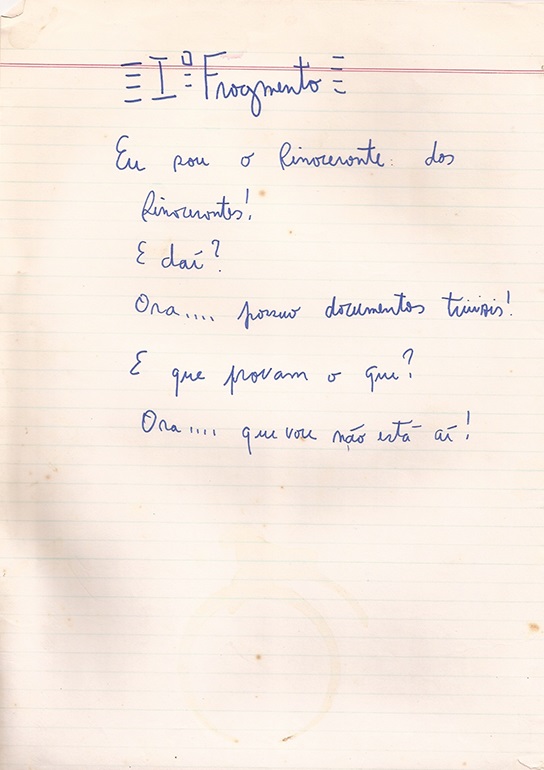 Iº Fragmento
Eu sou o Rinoceronte dos
Rinocerontes!
E daí?
Ora.... possuo documentos
E que provam o que?
Ora.... que voce não está aí!